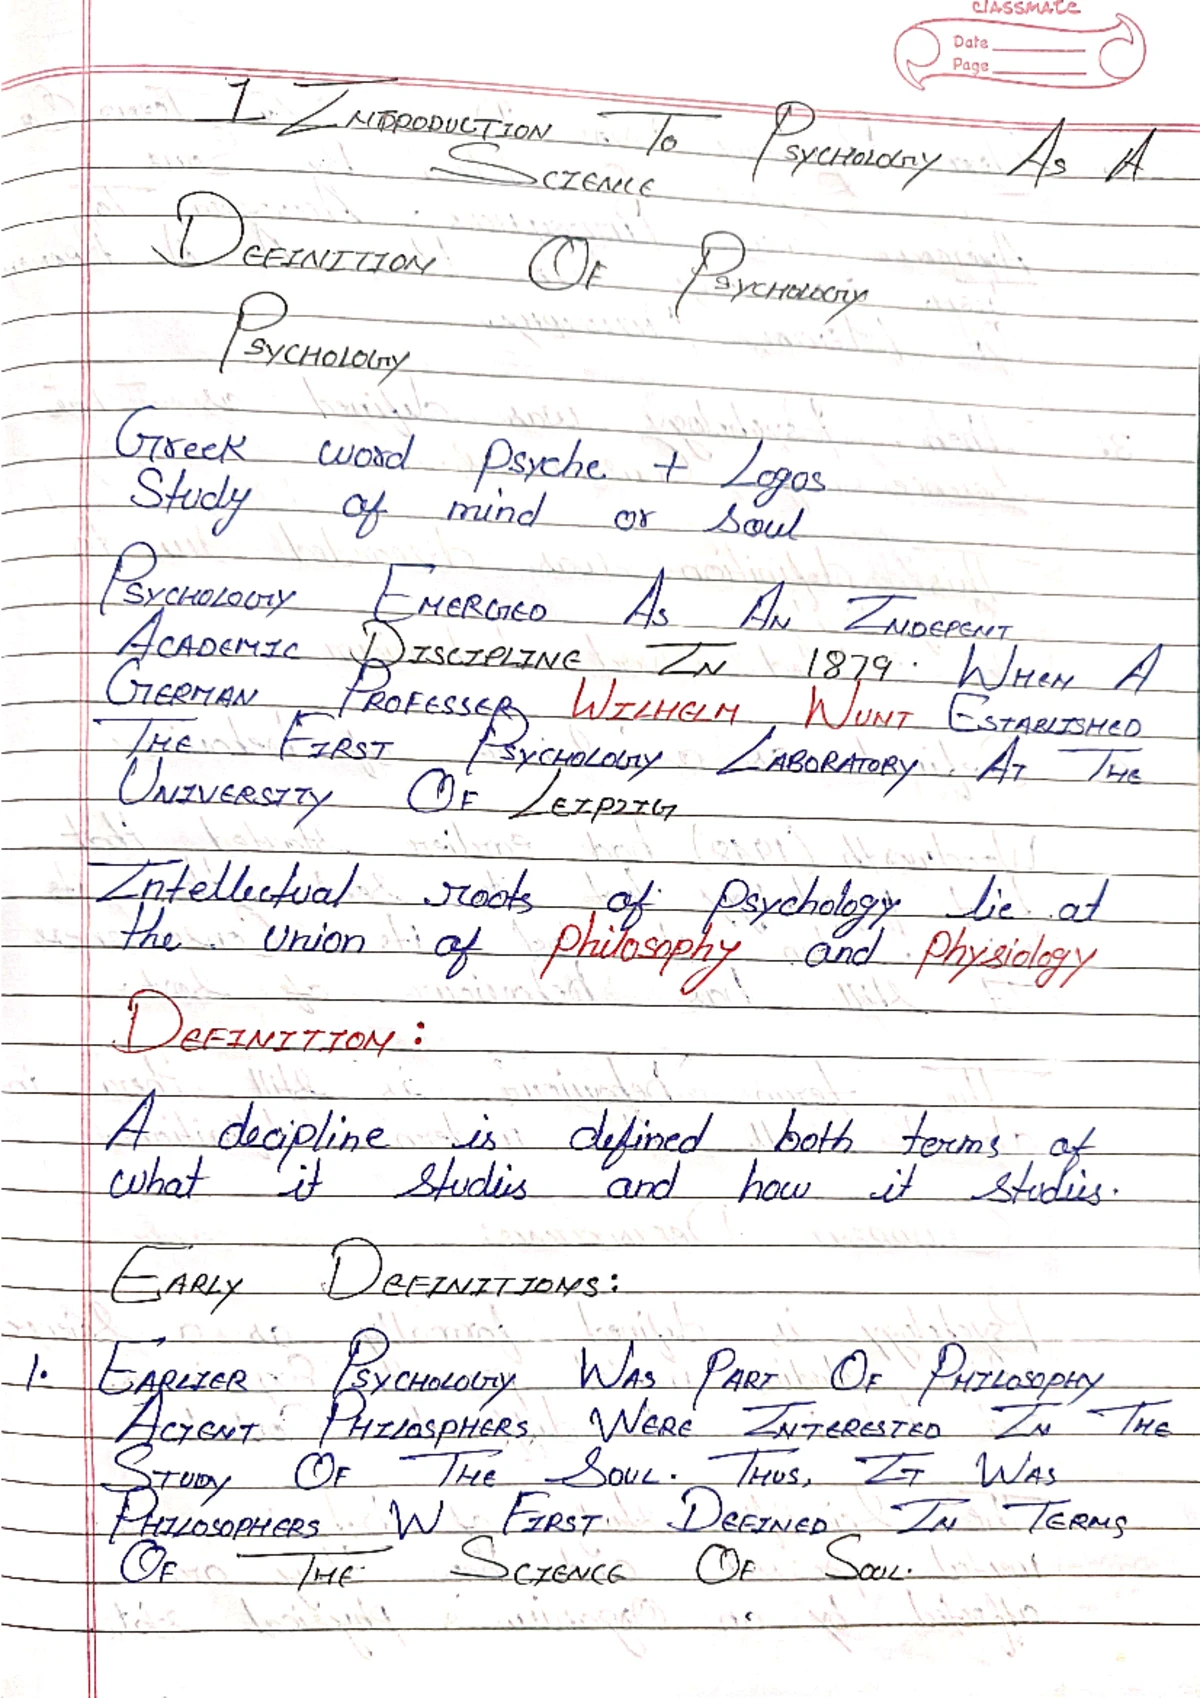 classmate
Date
Page
1 Introduction To Psychology As A
Science
Definition Of Psychology
Psychology
Greek word psyche + Logos
Study of mind or soul
Psychology Emerged As An Indepent
Academic Discipline In 1879. When A
German Professer Wilhelm Wunt Established
The First Psychology Laboratory At The
University Of Leipzig
Intellectual roots of psychology lie at
the union of philosophy and physiology
Definition:
A decipline is defined both terms of
what it studies and how it studies.
Early Definitions:
1. Earlier Psychology Was Part Of Philosophy
Acient Philosphers Were Interested In The
Study Of The Soul. Thus, It Was
Philosophers W First Defined In Terms
Of The Science Of Soul.